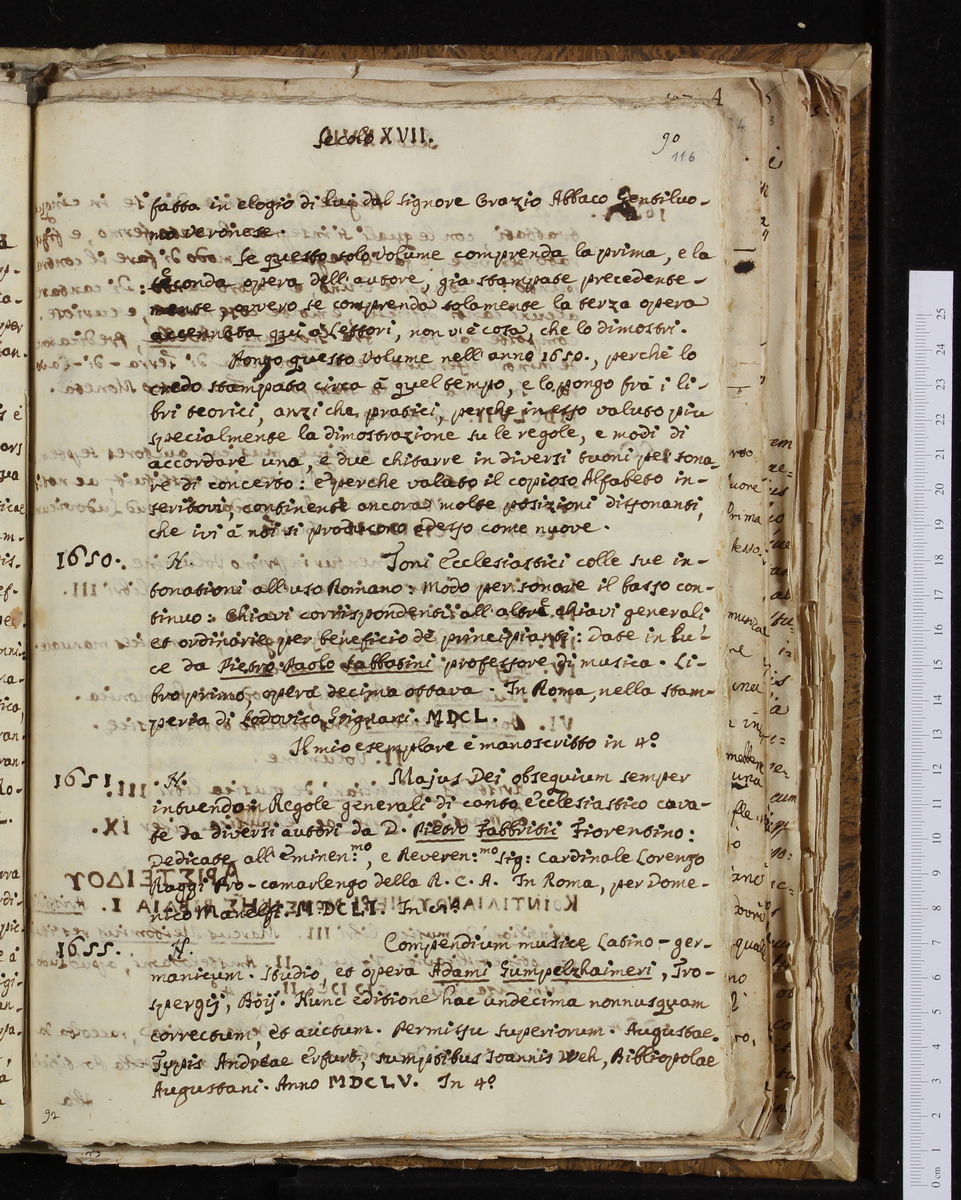 4
Secolo XVII.
90
116
fatta in elogio di lui dal signore Grazio Abbaco Gentiluo-
mo Veronese.
Se questo solo volume comprenda la prima, e la
seconda opera dell'autore, gia stampate precedente-
mente ovvero se comprenda solamente la terza opera
accennata qui a Lettori, non vi è cosa, che lo dimostri.
Pongo questo Volume nell'anno 1650., perchè lo
credo stampato circa à quel tempo, e lo pongo frà i li-
bri teorici, anzi che pratici, perche in esso valuto più
specialmente la dimostrazione su le regole, e modi di
accordare una, e due chitarre in diversi tuoni per sona-
re di concerto: e perche valuto il copioso Alfabeto in-
seritovi, continente ancora molte posizioni dissonanti,
che ivi à noi si producono adesso come nuove.
1650. N. Toni Ecclesiastici colle sue in-
tonationi all'uso Romano: Modo per sonare il basso con-
tinuo: Chiavi corrispondenti all'altre chiavi generali
et ordinarie per beneficio de principianti: Date in Lu-
ce da Pietro Paolo Sabbatini professore di musica. Li-
bro primo, opera decima ottava. In Roma, nella stam-
peria di Lodovico Grignani. MDCL.
Il mio esemplare è manoscritto in 4º
1651. N. Majus Dei obsequium semper
intuendam Regole generali di canto Ecclesiastico cava-
te da diversi autori da D. Pietro Fabbritii Fiorentino:
Dedicate all'Eminen:mo, e Reveren:mo Sig: Cardinale Lorenzo
Raggi Pro-camarlengo della R. C. A. In Roma, per Dome-
nico Manelfi. MDCLI. In 4º
1655. N. Compendium musice Latino-ger-
manicum. Studio, et opera Adami Gumpelzhaimeri, Tro-
spergij, Boij. Nunc editione hac undecima nonnusquam
correctum, et auctum. Permissu superiorum. Augustae.
Typis Andreae Erfurt, sumptibus Ioannis Weh, Bibliopolae
Augustani. Anno MDCLV. In 4º
92